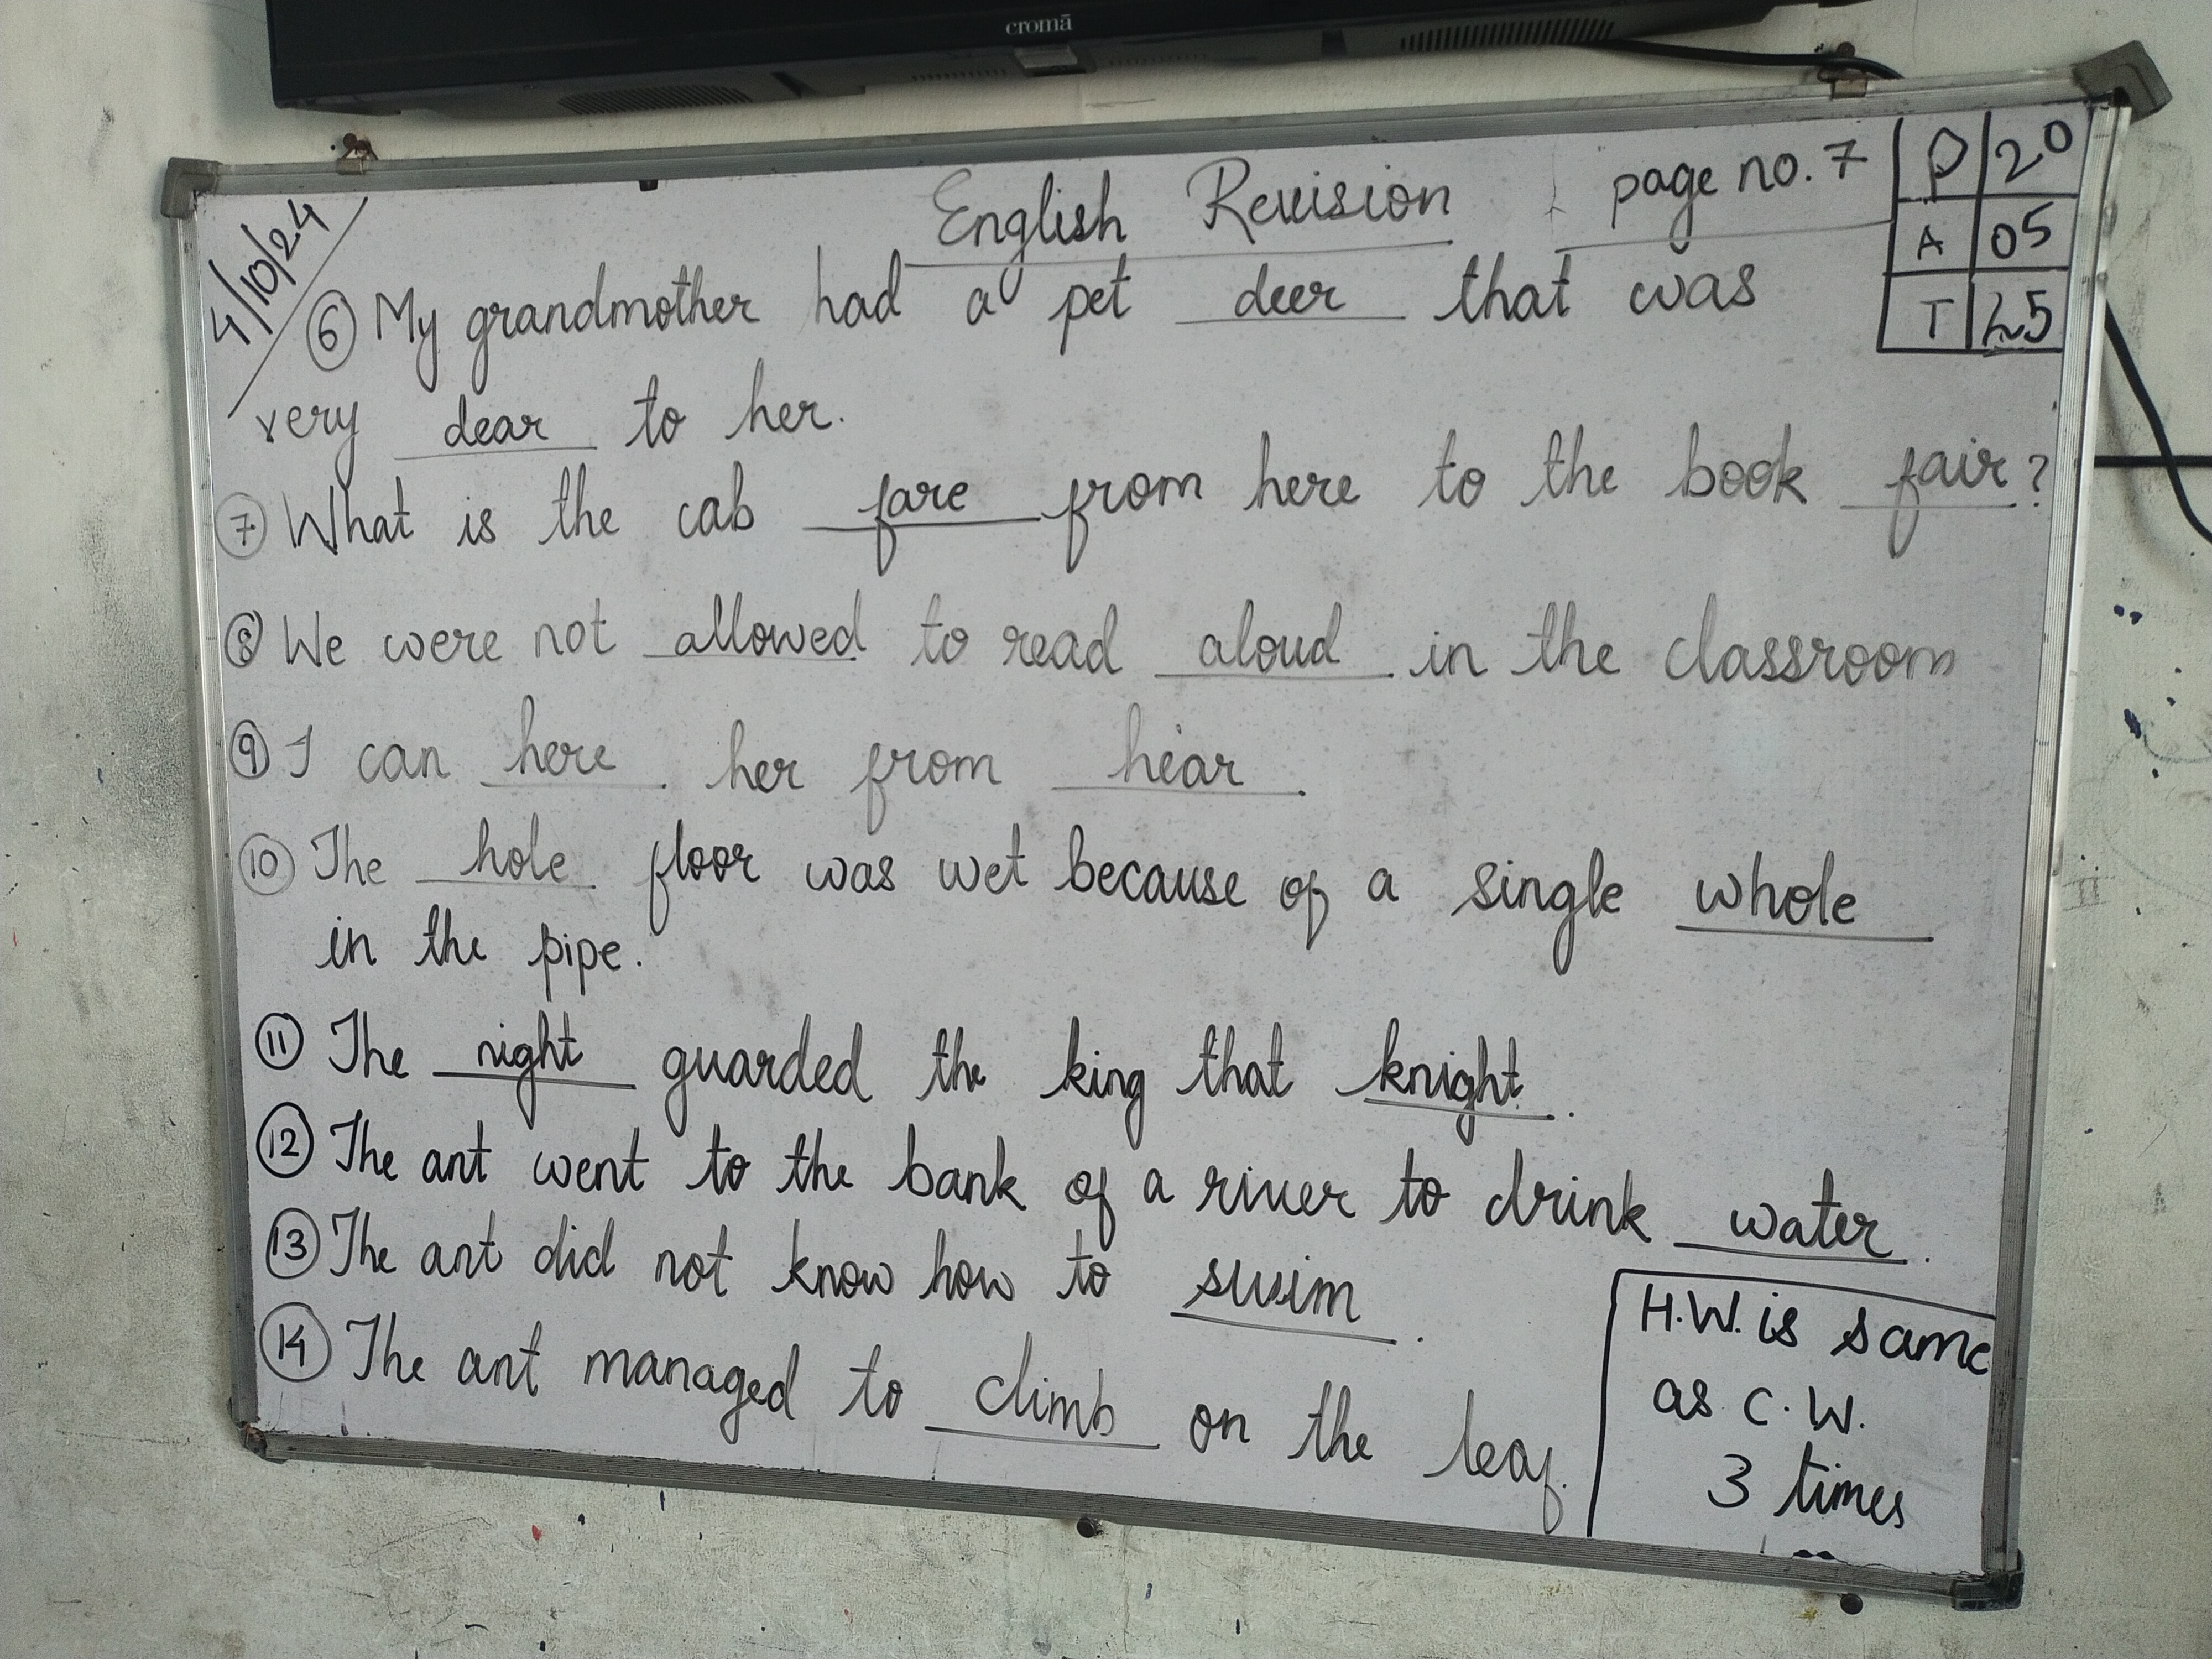 cromā
English Revision page no. 7
P 20
A 05
T 25
4/10/24
⑥ My grandmother had a pet deer that was
very dear to her.
⑦ What is the cab fare from here to the book fair?
⑧ We were not allowed to read aloud in the classroom
⑨ I can here her from hear.
⑩ The hole floor was wet because of a single whole
in the pipe.
⑪ The night guarded the king that knight.
⑫ The ant went to the bank of a river to drink water.
⑬ The ant did not know how to swim.
⑭ The ant managed to climb on the leaf.
H.W. is same
as C.W.
3 times